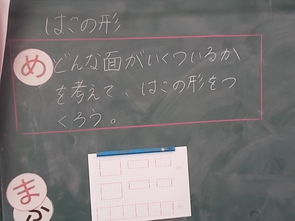 はこの形
め
どんな面がいくついるか
を考えて、はこの形をつ
くろう。
ま